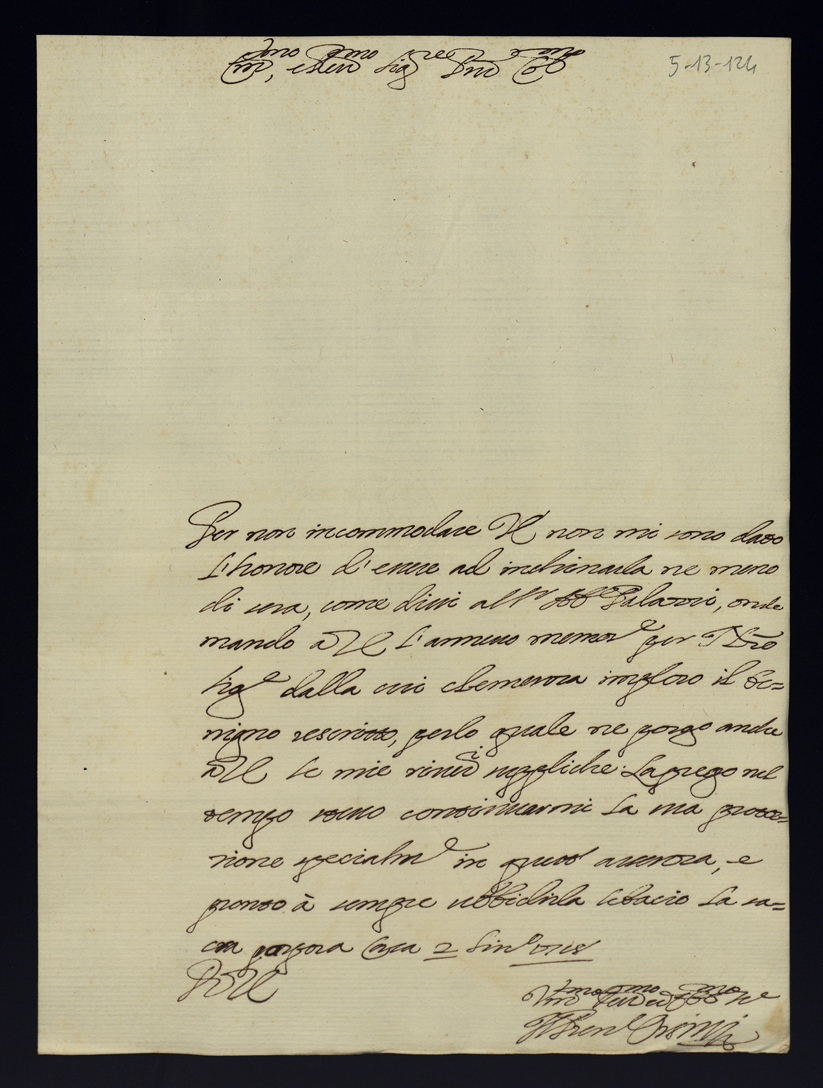 Em.mo e Rev.mo Sig.re P.ne Col.mo
5-13-124
Per non incommodare VE non mi sono dato
l'honore d'essere ad inchinarla ne meno
di sera, come dissi al Sr Abb.e Palazzi, onde
mando à VE l'annesso memor.e per Nro
Sig.e dalla cui clemenza imploro il be=
nigno rescritto, per lo quale ne porgo anche
à VE le mie river.i suppliche. La prego nel
tempo stesso continuarmi la sua prote=
zione specialm.e in quest' , e
pronto à sempre ubbidirla le bacio la sa=
cra porpora Casa 2
Di VE
Um.mo Dev.mo ed Obb.mo Se